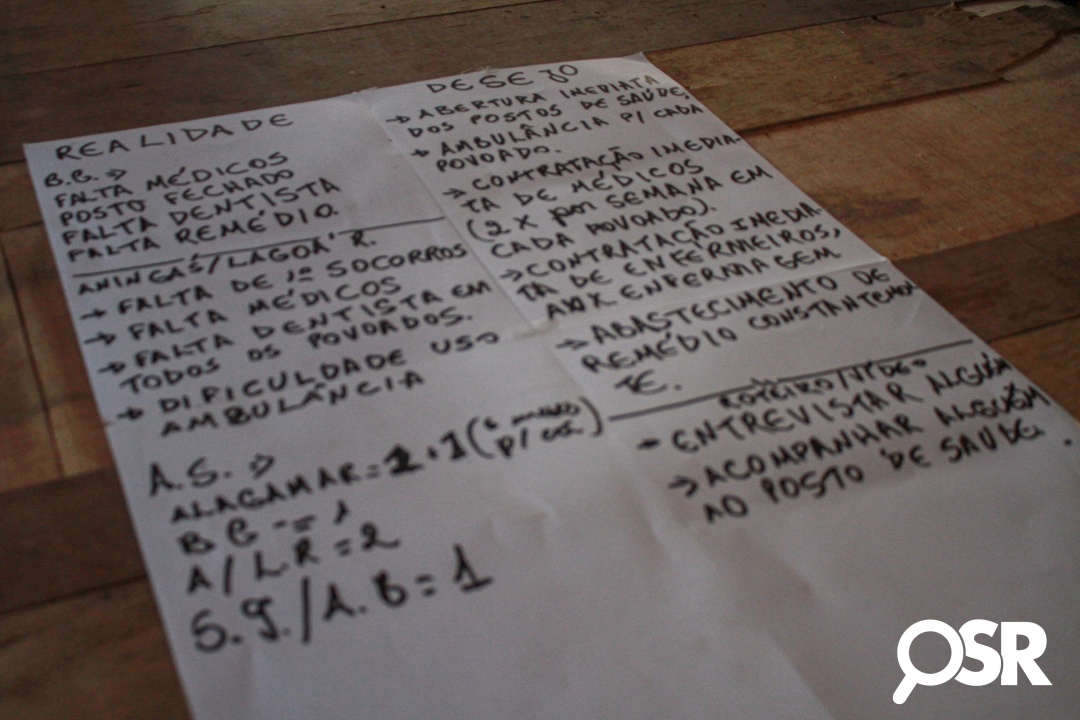 REALIDADE
B.B. →
FALTA MÉDICOS
POSTO FECHADO
FALTA DENTISTA
FALTA REMÉDIO
ANINGAS/LAGOA R.
→ FALTA DE 1º SOCORROS
→ FALTA MÉDICOS
→ FALTA DENTISTA EM
TODOS OS POVOADOS.
→ DIFICULDADE USO
AMBULÂNCIA
A.S. →
ALAGAMAR = 1
P/
= 1
A/LR = 2
S.J./A.B = 1
DESEJO
→ ABERTURA IMEDIATA
DOS POSTOS DE SAÚDE.
→ AMBULÂNCIA P/ CADA
POVOADO.
→ CONTRATAÇÃO IMEDIA-
TA DE MÉDICOS
(2 X por SEMANA EM
CADA POVOADO).
→ CONTRATAÇÃO IMEDIA-
TA DE ENFERMEIROS,
AUX ENFERMAGEM
→ ABASTECIMENTO DE
REMÉDIO CONSTANTEMEN
TE.
ROTEIRO/VÍDEO
→ ENTREVISTAR ALGUÉM
→ ACOMPANHAR ALGUÉM
AO POSTO DE SAÚDE.
OSR